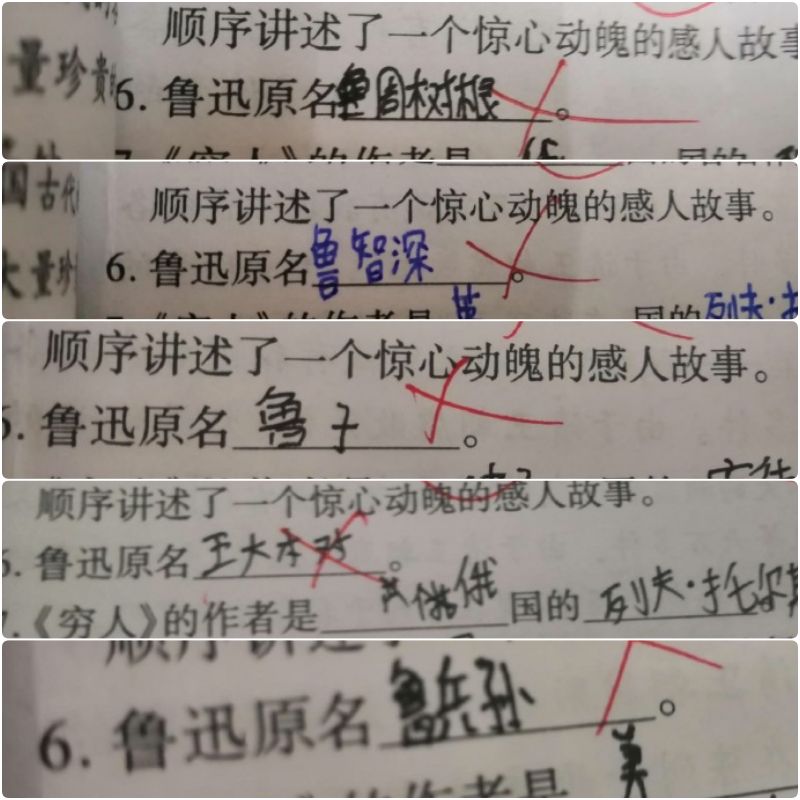 量珍贵
顺序讲述了一个惊心动魄的感人故事
6. 鲁迅原名周树根。
国古代
顺序讲述了一个惊心动魄的感人故事。
大量珍
6. 鲁迅原名鲁智深。
国的列夫·托
顺序讲述了一个惊心动魄的感人故事。
6. 鲁迅原名鲁子。
顺序讲述了一个惊心动魄的感人故事。
6. 鲁迅原名。
7.《穷人》的作者是俄国的列夫·托尔斯
6. 鲁迅原名鲁兵孙。
的作者是美